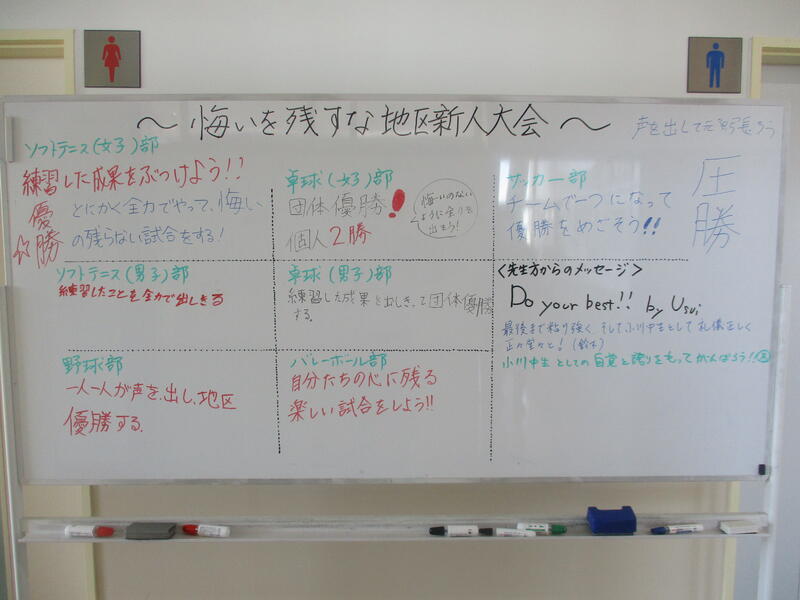 ～ 悔いを残すな地区新人大会 ～
声を出して元気に頑張ろう
ソフトテニス(女子)部
練習した成果をぶつけよう!!
優勝
とにかく全力でやって、悔い
の残らない試合をする!
卓球(女子)部
団体優勝!
個人2勝
悔いのない
ように全力を
出そう!
サッカー部
チームで一つになって
優勝をめざそう!!
圧勝
ソフトテニス(男子)部
練習したことを全力で出しきる
卓球(男子)部
練習した成果を出しきって団体優勝
する。
<先生方からのメッセージ>
Do your best!! by Usui
最後まで粘り強く、そして小川中生として礼儀正しく
正々堂々と!(鈴木)
小川中生としての自覚と誇りをもってがんばろう!!
野球部
一人一人が声を出し、地区
優勝する。
バレーボール部
自分たちの心に残る
楽しい試合をしよう!!